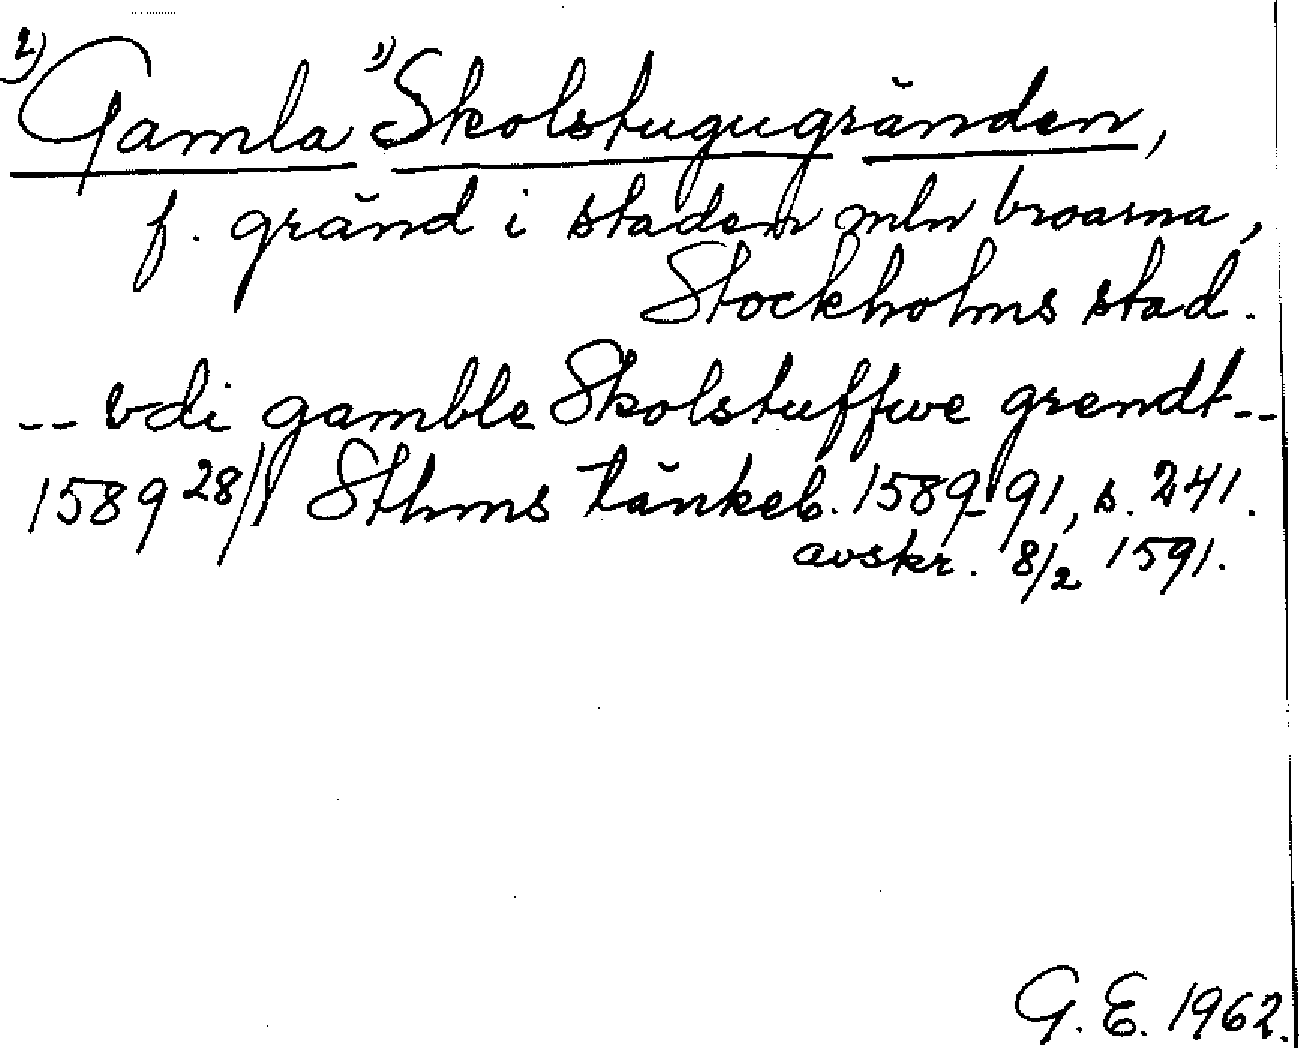 2) Gamla 1) Skolstugugränden,
f. gränd i staden mln broarna,
Stockholms stad.
-- vdi gamble Skolstuffwe grendt --
1589 28/1 Sthms tänkeb. 1589-91, s. 241.
avskr. 8/2 1591.
G. E. 1962.